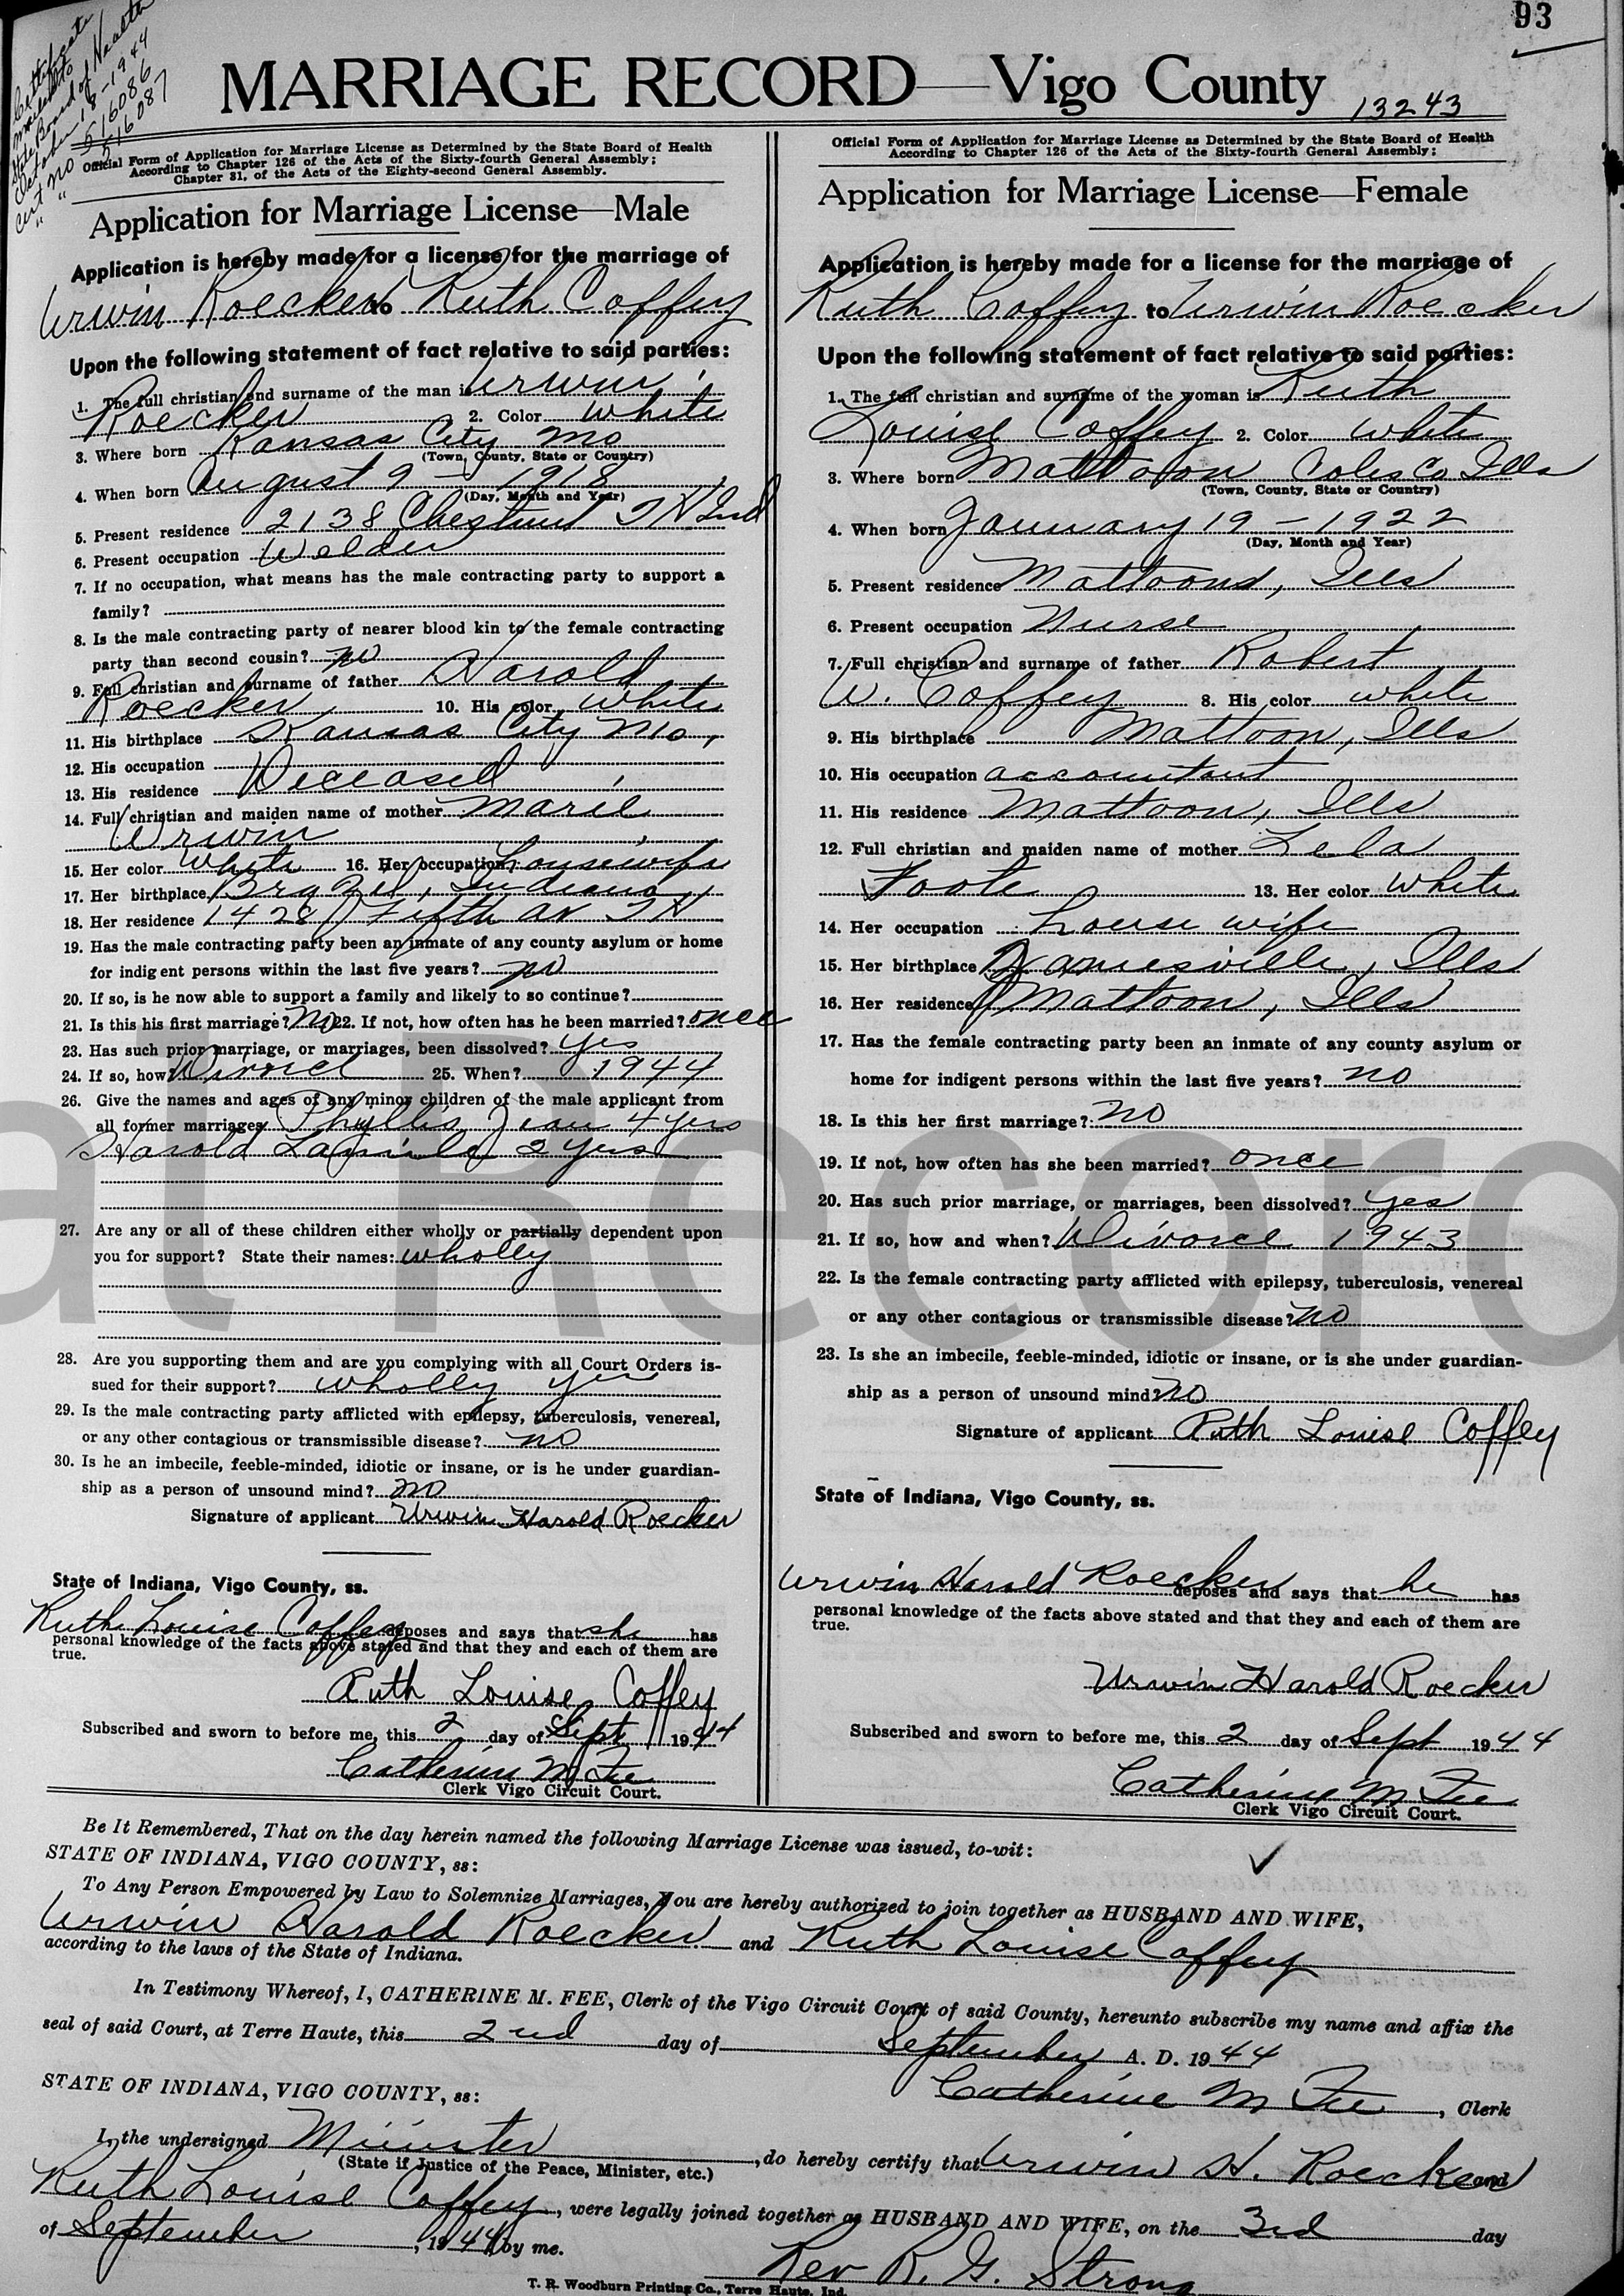 93
Certificate
mailed to
State Board of Health
October 18-1944
Cert no 516086
" " 516087
MARRIAGE RECORD—Vigo County 13243
Official Form of Application for Marriage License as Determined by the State Board of Health
According to Chapter 126 of the Acts of the Sixty-fourth General Assembly;
Chapter 31, of the Acts of the Eighty-second General Assembly.
Application for Marriage License—Male
Application is hereby made for a license for the marriage of
Urwin Roecker to Ruth Coffey
Upon the following statement of fact relative to said parties:
1. The full christian and surname of the man is Urwin
Roecker 2. Color white
3. Where born Kansas City Mo
(Town, County, State or Country)
4. When born August 9 - 1918
(Day, Month and Year)
5. Present residence 2138 Chestnut T H Ind
6. Present occupation Welder
7. If no occupation, what means has the male contracting party to support a
family?
8. Is the male contracting party of nearer blood kin to the female contracting
party than second cousin? no
9. Full christian and surname of father Harold
Roecker 10. His color white
11. His birthplace Kansas City Mo,
12. His occupation
13. His residence Deceased
14. Full christian and maiden name of mother Marie
Urwin
15. Her color white 16. Her occupation housewife
17. Her birthplace Brazil, Indiana
18. Her residence 1428 Fifth av T H
19. Has the male contracting party been an inmate of any county asylum or home
for indigent persons within the last five years? no
20. If so, is he now able to support a family and likely to so continue?
21. Is this his first marriage? No 22. If not, how often has he been married? once
23. Has such prior marriage, or marriages, been dissolved? yes
24. If so, how Divorce 25. When? 1944
26. Give the names and ages of any minor children of the male applicant from
all former marriages Phyllis Jean 4 yrs
Harold 2 yrs
27. Are any or all of these children either wholly or partially dependent upon
you for support? State their names: wholly
28. Are you supporting them and are you complying with all Court Orders is-
sued for their support? wholly yes
29. Is the male contracting party afflicted with epilepsy, tuberculosis, venereal,
or any other contagious or transmissible disease? no
30. Is he an imbecile, feeble-minded, idiotic or insane, or is he under guardian-
ship as a person of unsound mind? no
Signature of applicant Urwin Harold Roecker
State of Indiana, Vigo County, ss.
Ruth Louise Coffey deposes and says that she has
personal knowledge of the facts above stated and that they and each of them are
true.
Ruth Louise Coffey
Subscribed and sworn to before me, this 2 day of Sept 1944
Catherine M Fee
Clerk Vigo Circuit Court.
Official Form of Application for Marriage License as Determined by the State Board of Health
According to Chapter 126 of the Acts of the Sixty-fourth General Assembly;
Application for Marriage License—Female
Application is hereby made for a license for the marriage of
Ruth Coffey to Urwin Roecker
Upon the following statement of fact relative to said parties:
1. The full christian and surname of the woman is Ruth
Louise Coffey 2. Color white
3. Where born Mattoon Coles Co Ills
(Town, County, State or Country)
4. When born January 19 - 1922
(Day, Month and Year)
5. Present residence Mattoon, Ills
6. Present occupation Nurse
7. Full christian and surname of father Robert
W. Coffey 8. His color white
9. His birthplace Mattoon, Ills
10. His occupation accountant
11. His residence Mattoon, Ills
12. Full christian and maiden name of mother Lela
Foote 13. Her color white
14. Her occupation house wife
15. Her birthplace Janesville, Ills
16. Her residence Mattoon, Ills
17. Has the female contracting party been an inmate of any county asylum or
home for indigent persons within the last five years? no
18. Is this her first marriage?: no
19. If not, how often has she been married? once
20. Has such prior marriage, or marriages, been dissolved? yes
21. If so, how and when? Divorce 1943
22. Is the female contracting party afflicted with epilepsy, tuberculosis, venereal
or any other contagious or transmissible disease? no
23. Is she an imbecile, feeble-minded, idiotic or insane, or is she under guardian-
ship as a person of unsound mind? no
Signature of applicant Ruth Louise Coffey
State of Indiana, Vigo County, ss.
Urwin Harold Roecker deposes and says that he has
personal knowledge of the facts above stated and that they and each of them are
true.
Urwin Harold Roecker
Subscribed and sworn to before me, this 2 day of Sept 1944
Catherine M Fee
Clerk Vigo Circuit Court.
Be It Remembered, That on the day herein named the following Marriage License was issued, to-wit:
STATE OF INDIANA, VIGO COUNTY, ss:
To Any Person Empowered by Law to Solemnize Marriages, You are hereby authorized to join together as HUSBAND AND WIFE,
Urwin Harold Roecker and Ruth Louise Coffey
according to the laws of the State of Indiana.
In Testimony Whereof, I, CATHERINE M. FEE, Clerk of the Vigo Circuit Court of said County, hereunto subscribe my name and affix the
seal of said Court, at Terre Haute, this 2nd day of September A. D. 1944
Catherine M Fee, Clerk
STATE OF INDIANA, VIGO COUNTY, ss:
I, the undersigned Minister, do hereby certify that Urwin H. Roecker and
(State if Justice of the Peace, Minister, etc.)
Ruth Louise Coffey, were legally joined together as HUSBAND AND WIFE, on the 3rd day
of September, 1944 by me.
Rev R. G. Strong
T. R. Woodburn Printing Co., Terre Haute, Ind.
al Record